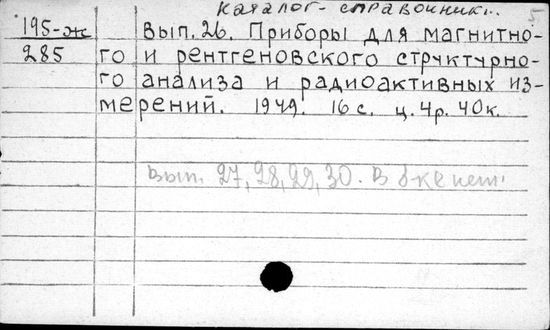 Каталог-справочник..
5
195-ж Вып. 26. Приборы для магнитно-
285 го и рентгеновского структурно-
го анализа и радиоактивных из-
мерений. 1949. 16 с. ц. 4р. 40к.
Вып. 27, 28, 29, 30. В б-ке нет.